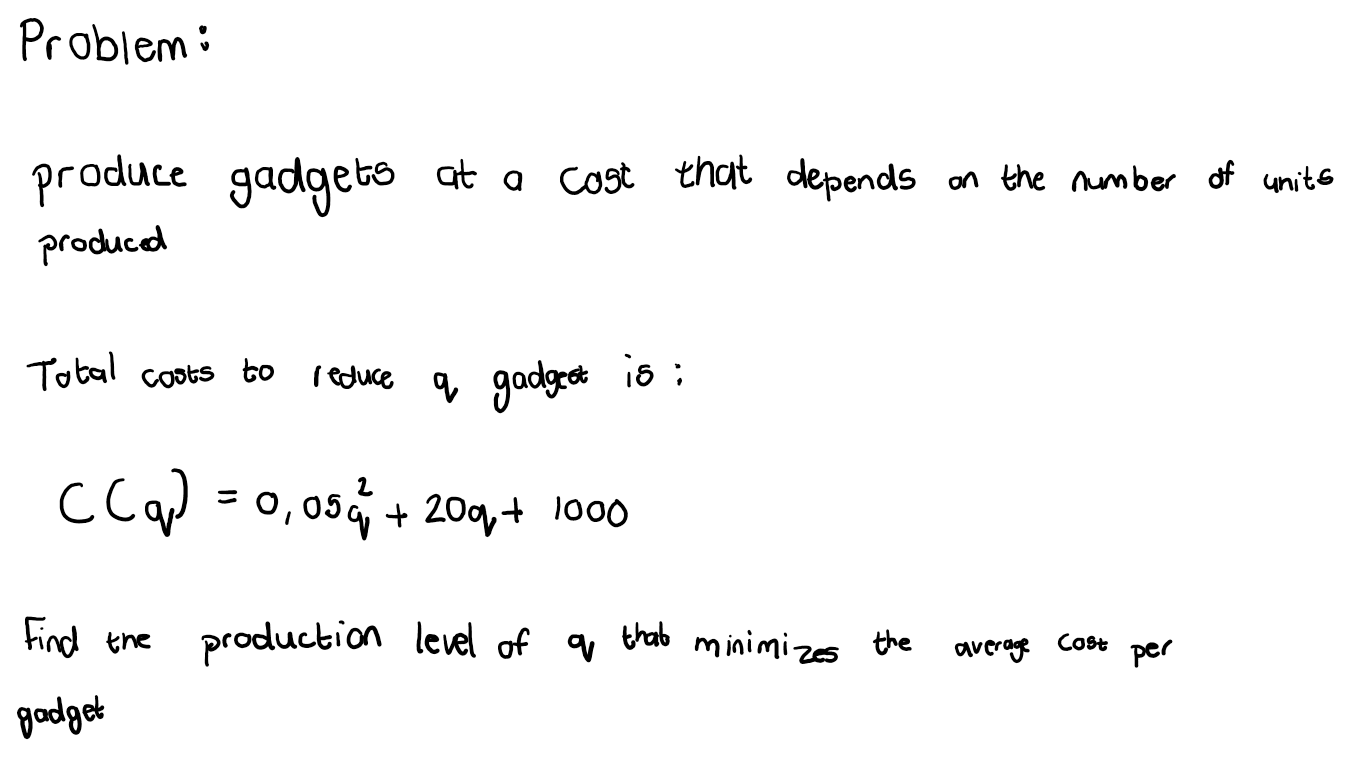 Problem:
produce gadgets at a cost that depends on the number of units
produced
Total costs to reduce q gadgest is:
C(q) = 0,05q² + 20q + 1000
Find the production level of q that minimizes the average cost per
gadget